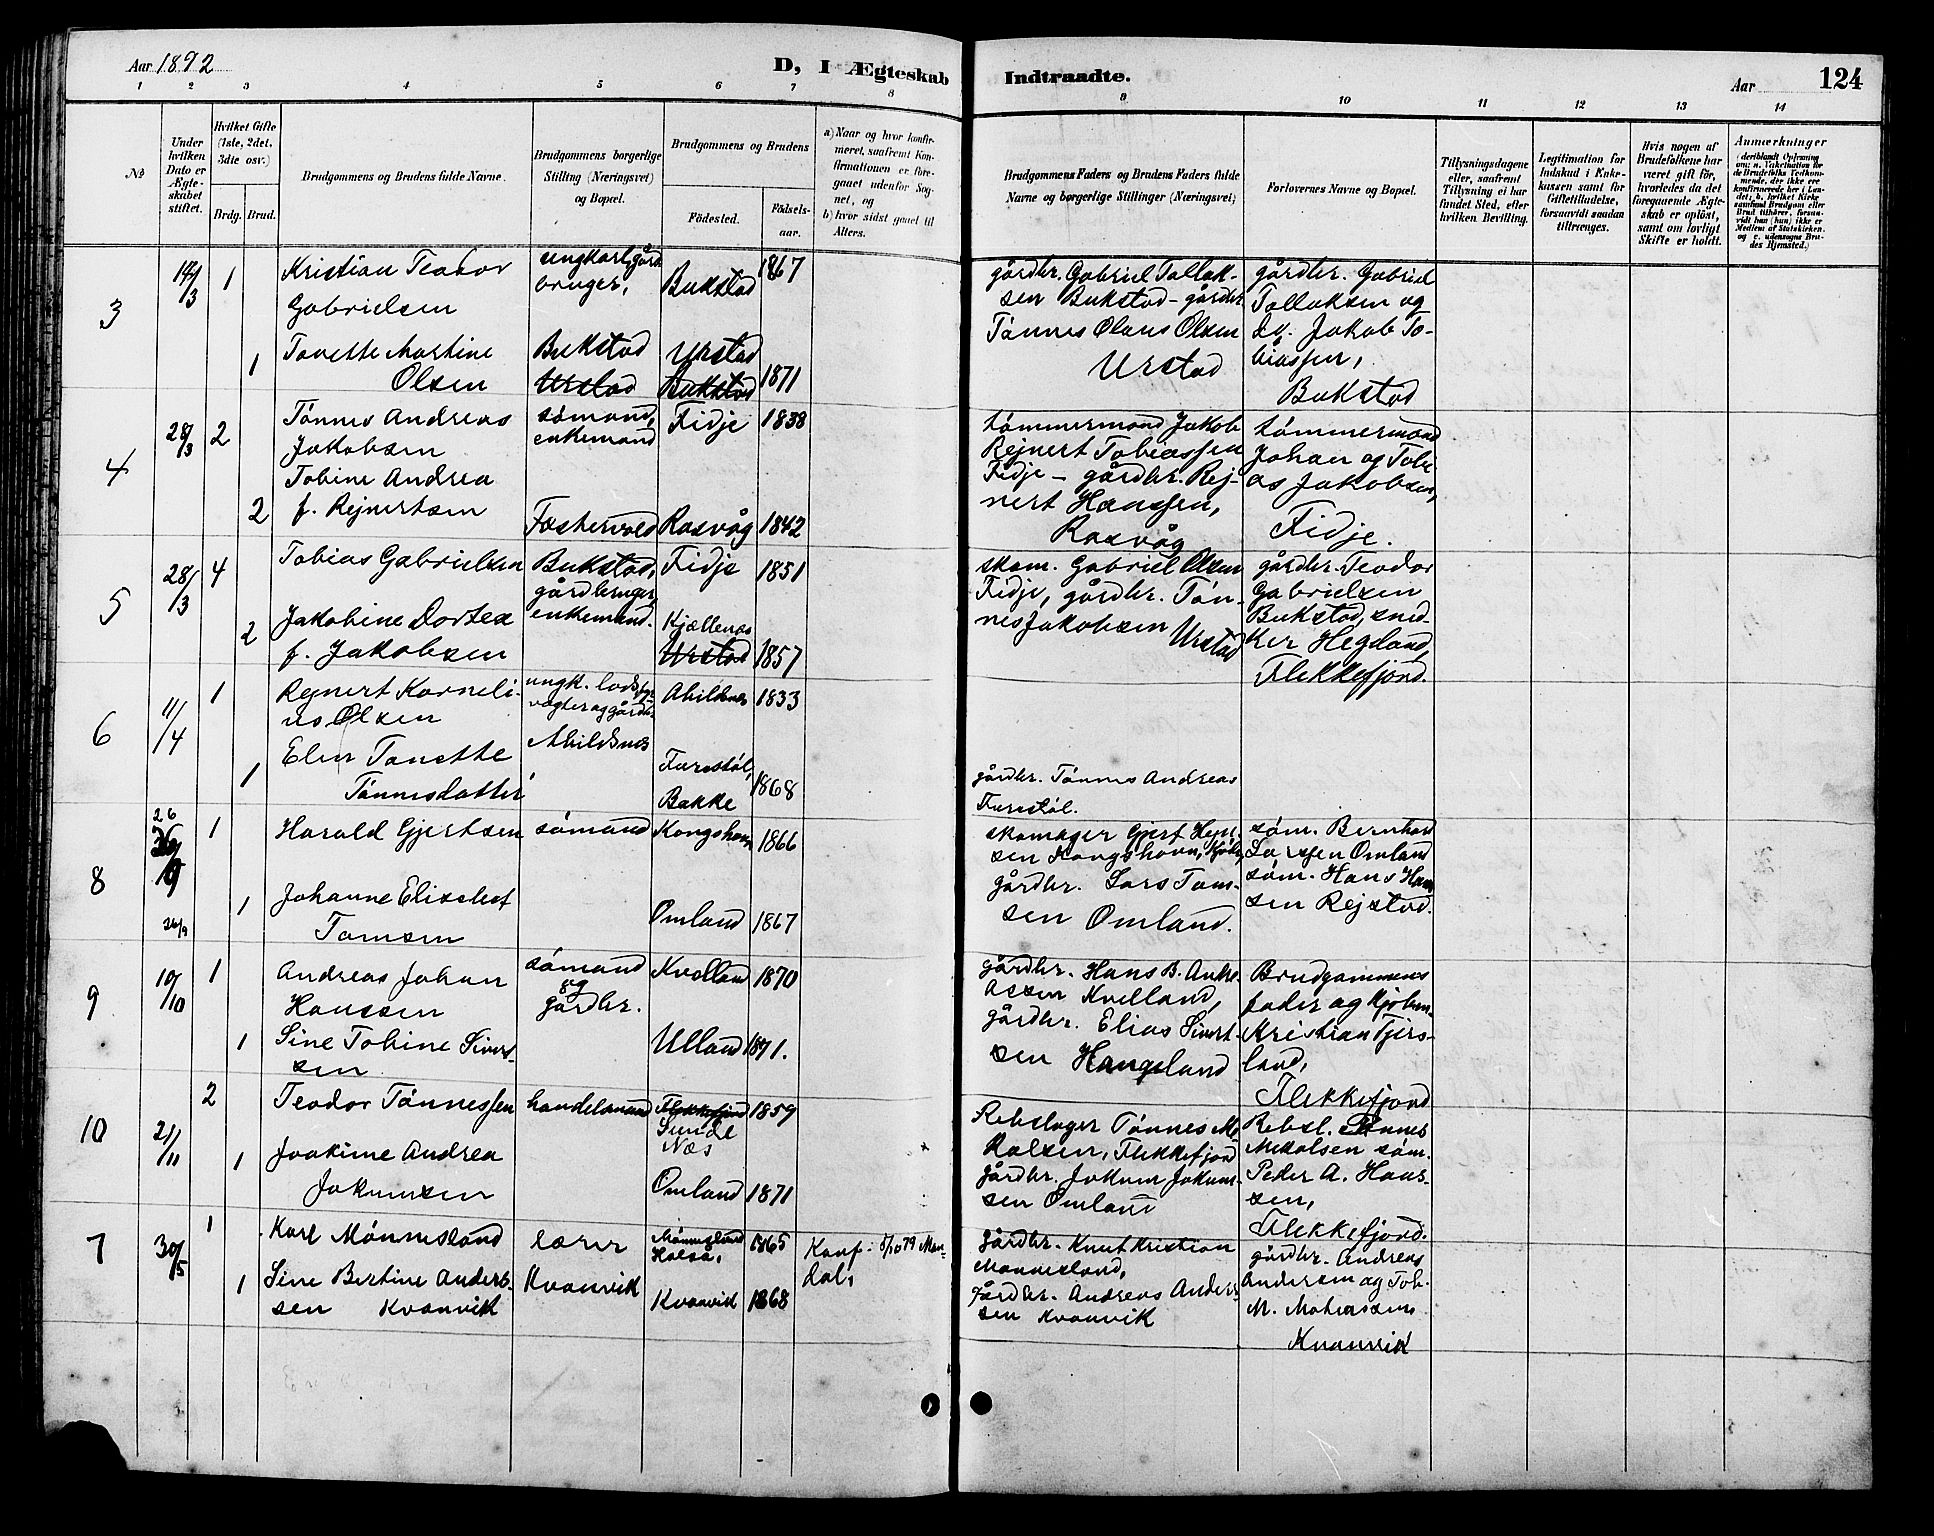 Aar 1892
D, I Ægteskab
Indtraadte.
Aar
124
1 2 3 4 5 6 7 8
9 10 11 12 13 14
No
Under hvilken Dato er Ægteskabet stiftet.
Hvilket Gifte (1ste, 2det, 3die osv.)
Brdg. Brud.
Brudgommens og Brudens fulde Navne.
Brudgommens borgerlige Stilling (Næringsvei) og Bopæl.
Brudgommens og Brudens
Födested.
Födsels-aar.
a) Naar og hvor konfirmeret, saafremt Konfirmationen er foregaaet udenfor Sognet, og
b) hvor sidst gaaet til Alters.
Brudgommens Faders og Brudens Faders fulde Navne og borgerlige Stillinger (Næringsvei)
Forlovernes Navne og Bopæl.
Tillysningsdagene eller, saafremt Tillysning ei har fundet Sted, efter hvilken Bevilling.
Legitimation for Indskud i Enkekassen samt for Giftetilladelse, forsaavidt saadan tiltrænges.
Hvis nogen af Brudefolkene har været gift för, hvorledes da det foregaaende Ægteskab er oplöst, samt om lovligt Skifte er holdt.
Anmærkninger
3
14/3
1
Kristian Teodor
Gabrielsen
ungkarl, gård
bruger,
Bukstad
1867
gårdbr. Gabriel Tollak-
sen Bukstad - gårdbr.
Tönnes Olaus Olsen
Urstad
gårdbr. Gabriel
Tollaksen og
do. Jakob To-
biassen,
Bukstad
1
Tonette Martine
Olsen
Bukstad
Urstad
Urstad
Bukstad
1871
4
28/3
2
Tönnes Andreas
Jakobsen
sömand,
enkemand
Fidje
1838
tömmermand Jakob
Rejnert Tobiassen
Fidje - gårdbr. Rej-
nert Hanssen,
Rasvåg
tömmermand
Johan og Tobi-
as Jakobsen,
Fidje.
2
Tobine Andrea
f. Rejnertsen
Fostervold
Rasvåg
1842
5
28/3
4
Tobias Gabrielsen
Bukstad,
gårdbruger,
enkemand.
Fidje
1851
skom. Gabriel Olsen
Fidje, gårdbr. Tön-
nes Jakobsen
Urstad
gårdbr. Teodor
Gabrielsen
Bukstad, sned-
ker Hegland,
Flekkefjord.
2
Jakobine Dortea
f. Jakobsen
Kjellenæs
Urstad
1857
6
11/4
1
Rejnert Korneli-
us Olsen
Abildsnes
Abildsnes
1833
1
Elen Tonette
Tönnesdatter
Furestöl,
Bakke
1868
gårdbr. Tönnes Andreas
Furestöl.
8
26
26/9
1
Harald Gjertsen
sömand
Kongshavn
1866
skomager Gjert
sen Kongshavn,
gårdbr. Lars Tom-
sen Omland.
söm. Bernhard
Larssen Omland
söm. Hans Han
sen Rejstad.
1
Johanne Elisabet
Tomsen
Omland
1867
9
10/10
1
Andreas Johan
Hanssen
sömand
og
gårdbr.
Kvelland
1870
gårdbr. Hans B. Andre-
assen Kvelland,
gårdbr. Elias Sivert-
sen Hangeland
Brudgommens
fader og kjöbm.
Kristian Tjers-
land,
Flekkefjord
1
Sine Tobine Sivert-
sen
Ulland
1871.
10
21/11
2
Teodor Tönnessen
handelsmand
Flekkefjord
Sunde
Næs
1859
Rebslager Tönnes Mi
kalsen, Flekkefjord
gårdbr. Jokum Jokum-
sen Omland
Rebsl. Tönnes
Mekalsen söm.
Peder A. Hans-
sen,
Flekkefjord.
1
Joakime Andrea
Jokumsen
Omland
1871
7
30/5
1
Karl Mönnesland
lærer
Mönnesland
Halså,
1865
Konf. 5/10 79 Man-
dal,
gårdbr. Knut Kristian
Monnesland,
gårdbr. Andreas Anders-
sen Kvanvik
gårdbr. Andreas
Andersen og Tob.
M. Mathiassen
Kvanvik
1
Sine Bertine Anders-
sen Kvanvik
Kvanvik
Kvanvik
1868